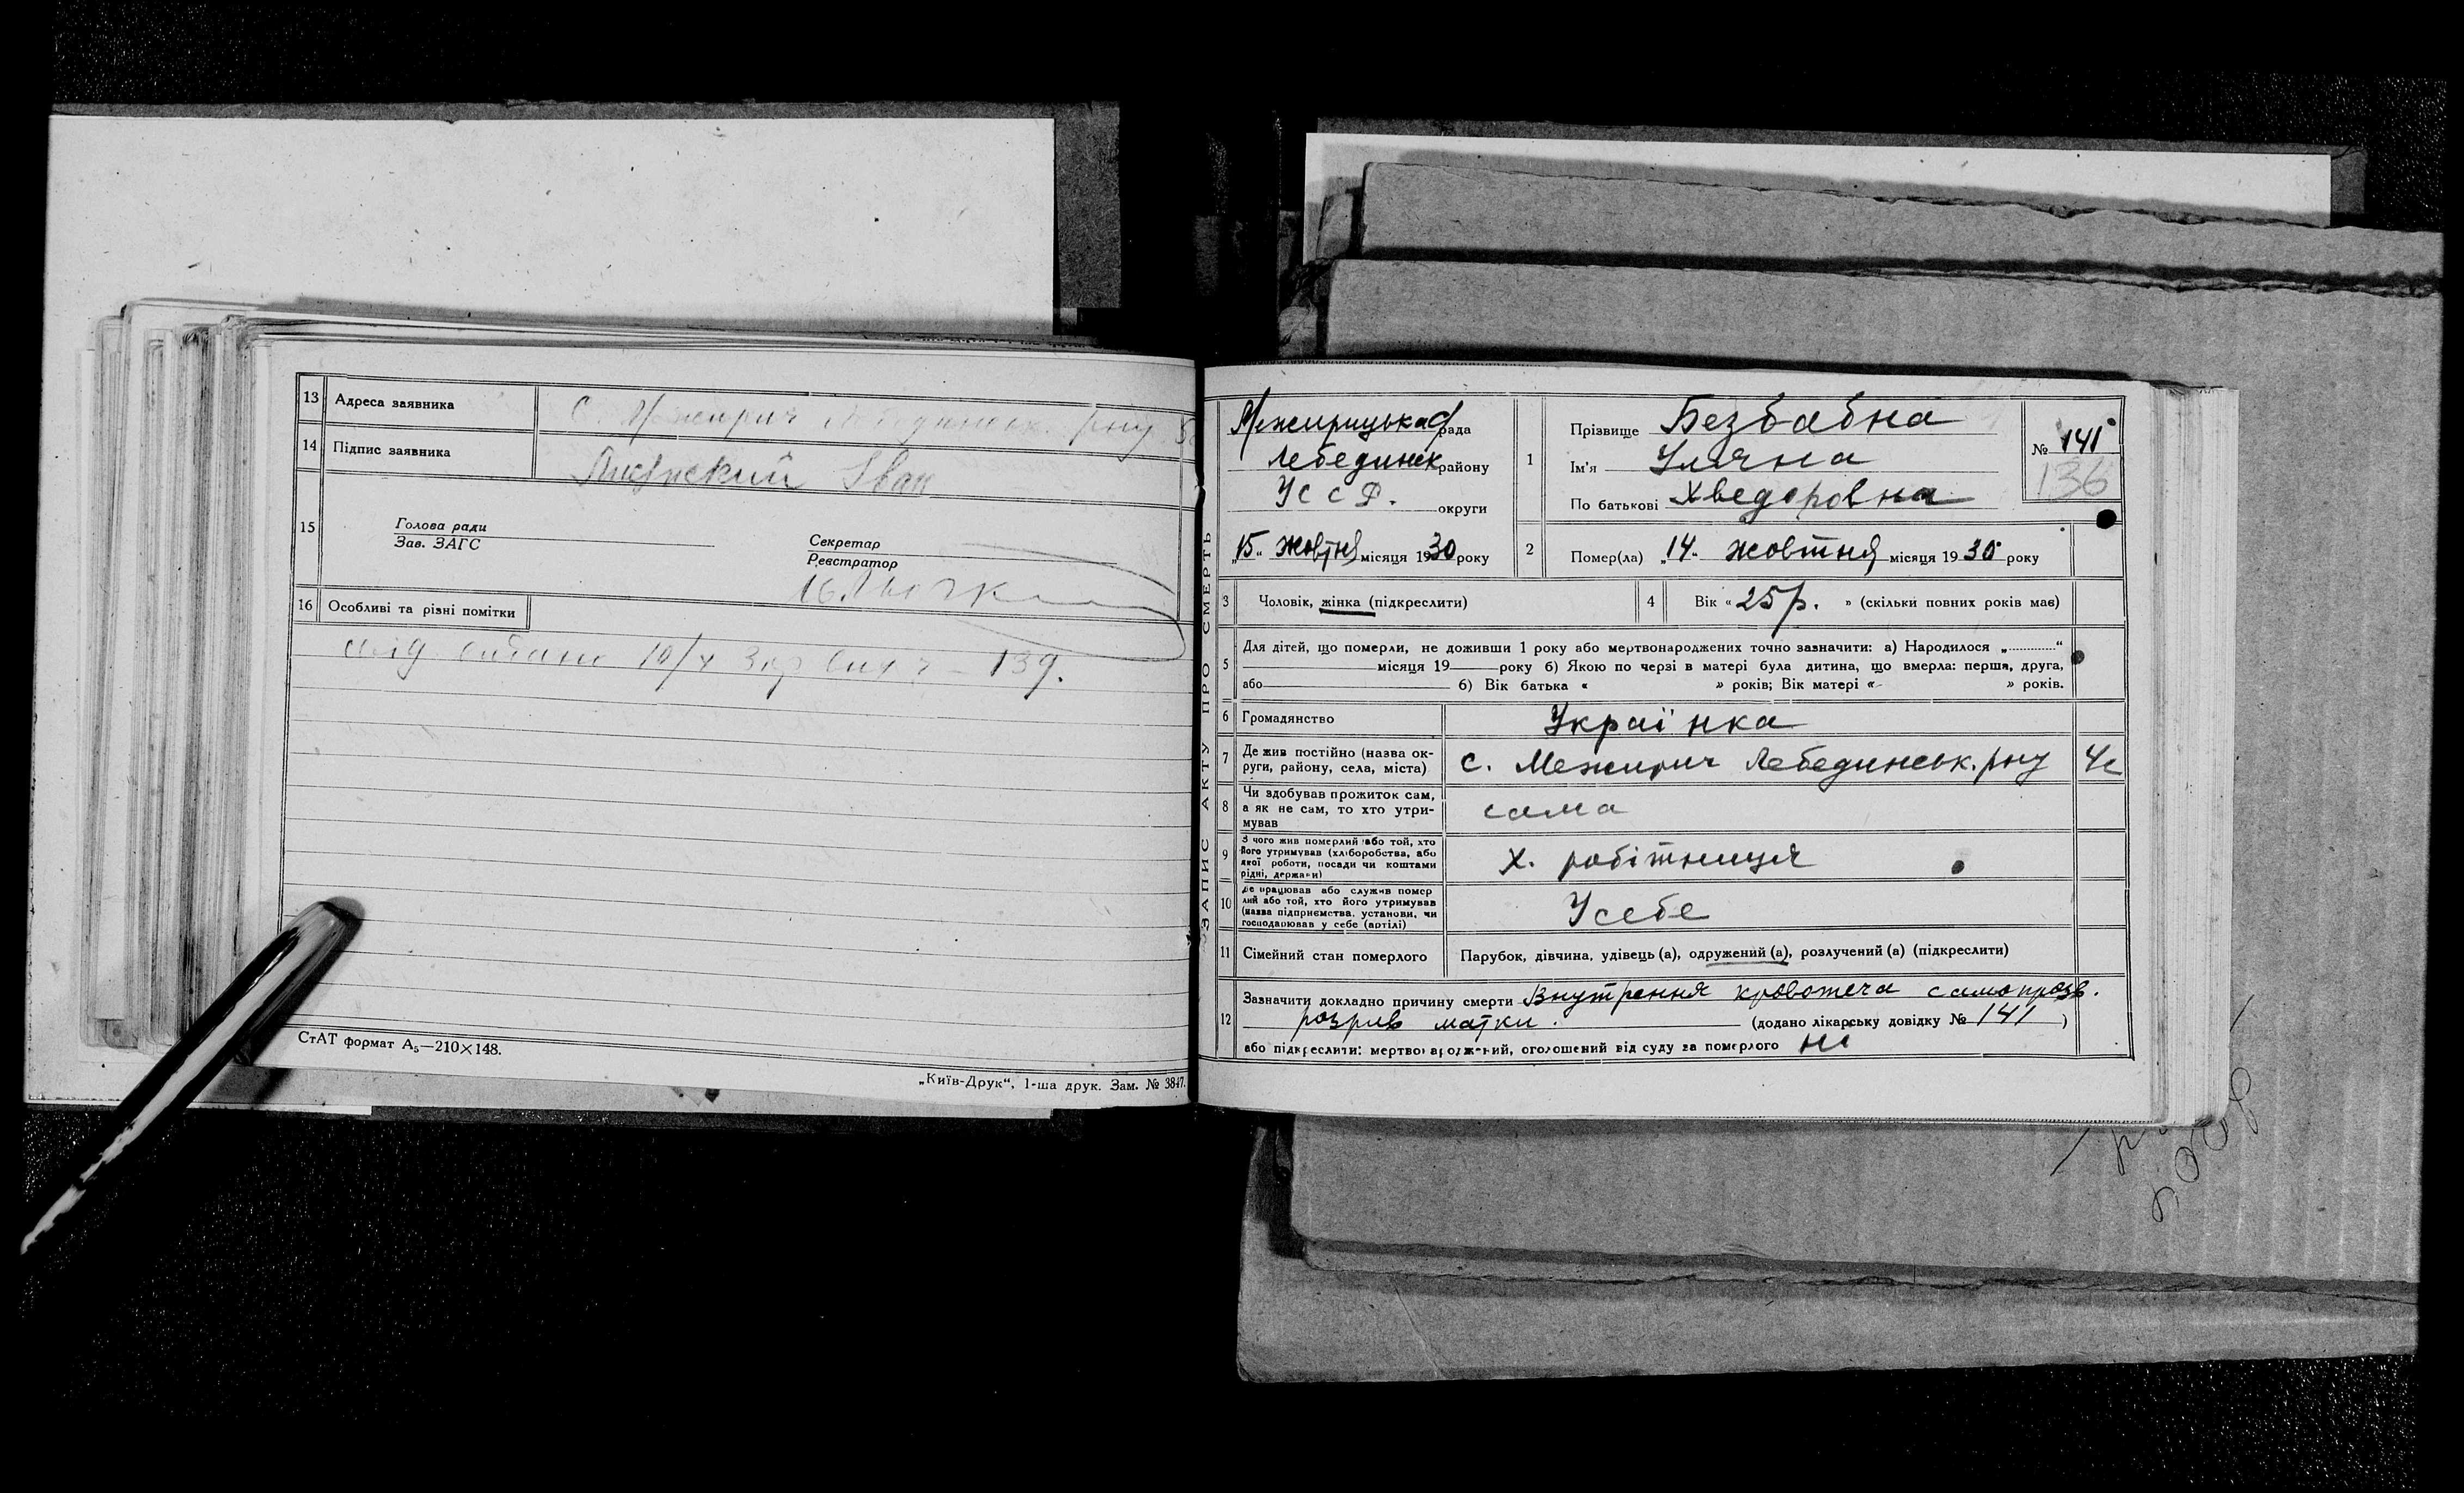 13 Адреса заявника С. Межирич Лебединськ. р-ну
14 Підпис заявника Іван
15 Голова ради
Зав. ЗАГС
Секретар
Реєстратор
16 Особливі та різні помітки
139.
СтАТ формат А₅—210×148.
„Київ-Друк“, 1-ша друк. Зам. № 3847.
ЗАПИС АКТУ ПРО СМЕРТЬ
Межирицька рада
Лебединск району
УССР. округи
„15“ жовтня місяця 1930 року
1 Прізвище Безбабна
Ім'я Уляна
По батькові Хведоровна
№ 141
136
2 Помер(ла) „14“ жовтня місяця 1930 року
3 Чоловік, жінка (підкреслити)
4 Вік « 25 р. » (скільки повних років має)
5 Для дітей, що померли, не доживши 1 року або мертвонароджених точно зазначити: а) Народилося „............“
місяця 19 року б) Якою по черзі в матері була дитина, що вмерла: перша, друга,
або б) Вік батька « » років; Вік матері « » років.
6 Громадянство Українка
7 Де жив постійно (назва округи, району, села, міста) с. Межирич Лебединськ. р-ну
8 Чи здобував прожиток сам, а як не сам, то хто утримував сама
9 З чого жив померлий або той, хто його утримував (хліборобства, або якої роботи, посади чи коштами рідні, держави) х. робітниця
10 Де працював або служив померлий або той, хто його утримував (назва підприємства, установи, чи господарював у себе (артілі) У себе
11 Сімейний стан померлого Парубок, дівчина, удівець (а), одружений (а), розлучений (а) (підкреслити)
12 Зазначити докладно причину смерти Внутрення кровотеча
розрив матки. (додано лікарську довідку № 141 )
або підкреслити: мертвонароджений, оголошений від суду за померлого ні